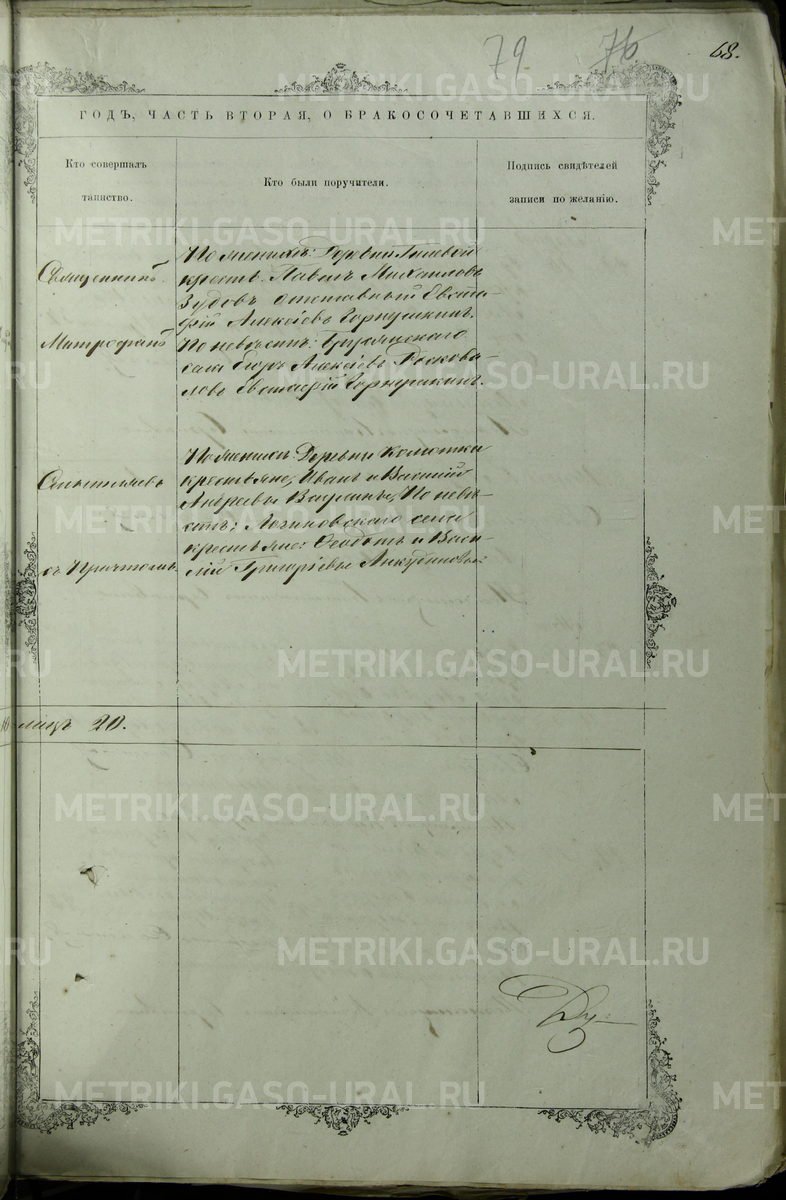 79. 76 68.
ГОДЪ, ЧАСТЬ ВТОРАЯ, О БРАКОСОЧЕТАВШИХСЯ.
Кто совершалъ
таинство.
Кто были поручители.
Подпись свидѣтелей
записи по желанію.
По женихѣ: Деревни
крест. Павелъ Михаиловъ
Зудовъ отставный Евста
фій Алексѣевъ Горнушкинъ.
По невѣстѣ:
села Алексѣевъ
Евстафій Горнушкинъ.
Священникъ
Митрофанъ
съ Причтомъ
По женихѣ: Деревни Колотки
крестьяне, Иванъ и Василій
Андреевы По невѣ
стѣ: Логиновскаго села
крестьяне: Ѳеодотъ и Васи
лій Григорьевы Анкудиновы.
лицъ 20.
METRIKI.GASO-URAL.RU